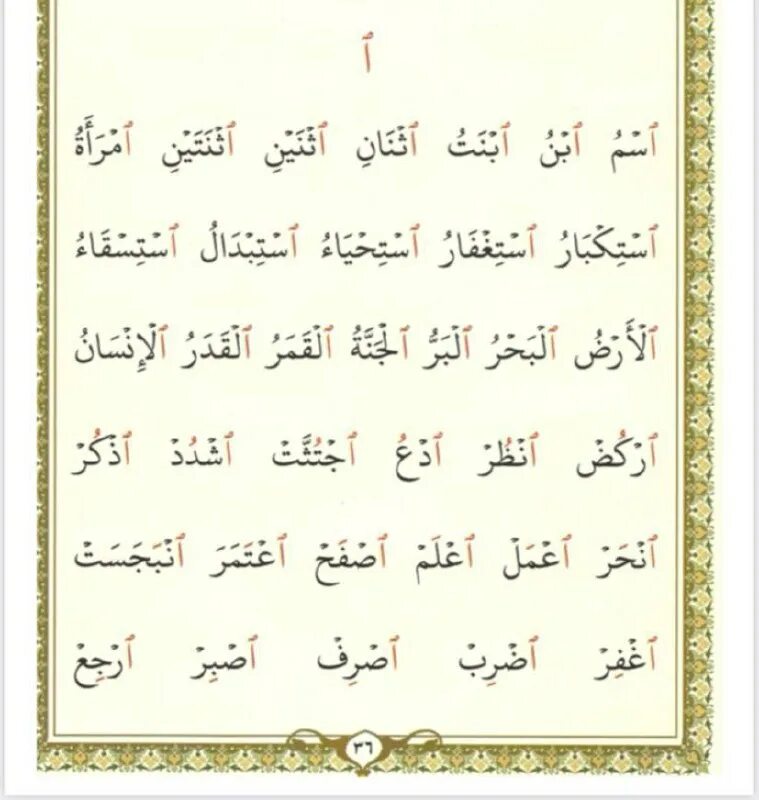 ٱ
ٱسۡمُ ٱبۡنُ ٱبۡنَتُ ٱثۡنَانِ ٱثۡنَيۡنِ ٱثۡنَتَيۡنِ ٱمۡرَأَةُ
ٱسۡتِكۡبَارُ ٱسۡتِغۡفَارُ ٱسۡتِحۡيَاءُ ٱسۡتِبۡدَالُ ٱسۡتِسۡقَاءُ
ٱلۡأَرۡضُ ٱلۡبَحۡرُ ٱلۡبَرُّ ٱلۡجَنَّةُ ٱلۡقَمَرُ ٱلۡقَدَرُ ٱلۡإِنۡسَانُ
ٱرۡكُضۡ ٱنۡظُرۡ ٱدۡعُ ٱجۡتُثَّتۡ ٱشۡدُدۡ ٱذۡكُرۡ
ٱنۡحَرۡ ٱعۡمَلۡ ٱعۡلَمۡ ٱصۡفَحۡ ٱعۡتَمَرَ ٱنۡبَجَسَتۡ
ٱغۡفِرۡ ٱضۡرِبۡ ٱصۡرِفۡ ٱصۡبِرۡ ٱرۡجِعۡ
٣٦